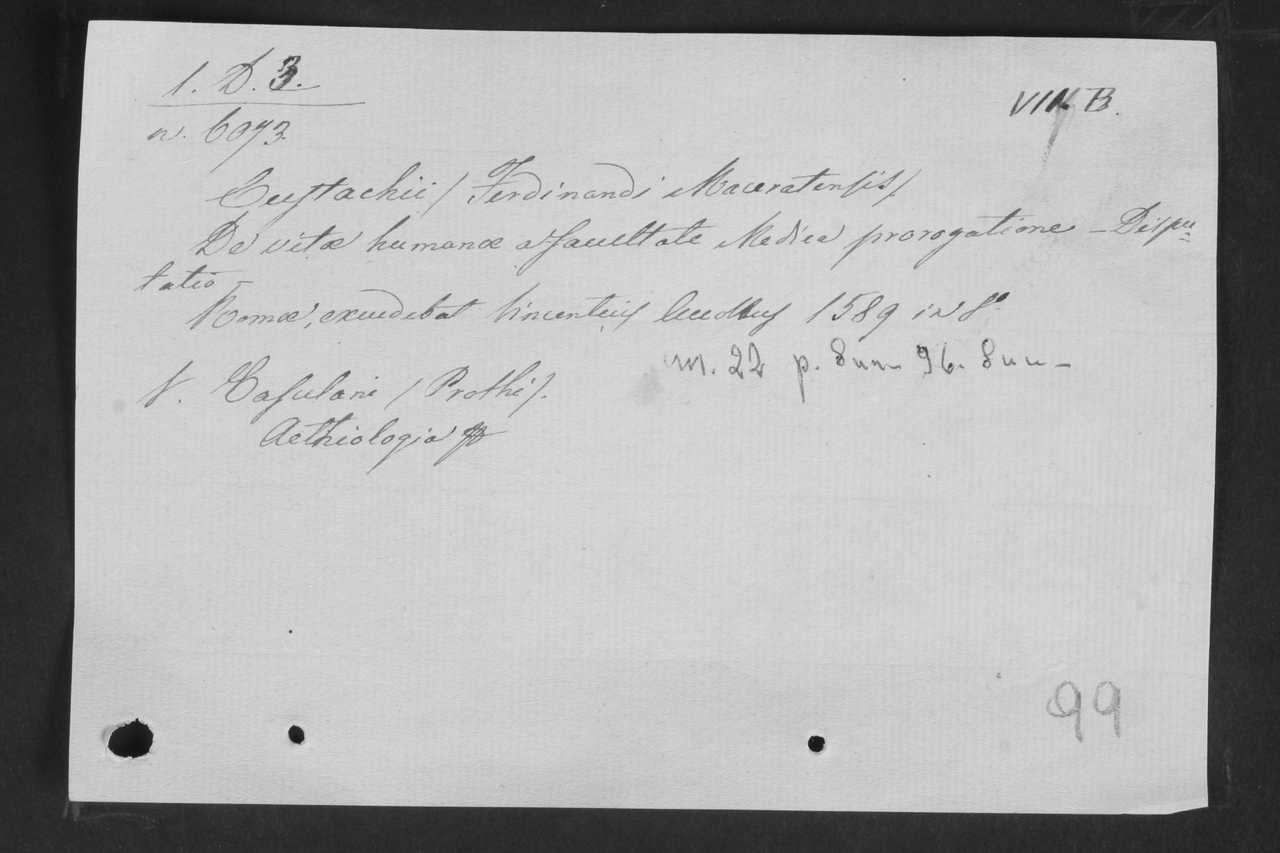 1. D. 3.
VIII B.
n. 6073
Eustachii / Ferdinandi Maceratensis /.
De vitæ humanæ a facultate Medica prorogatione – Dispu=
tatio –
Romæ, excudebat Vincentius Accoltus 1589 in 8°
m. 22 p. 96.
V. Casulani / Prothi /.
Aethiologia
99